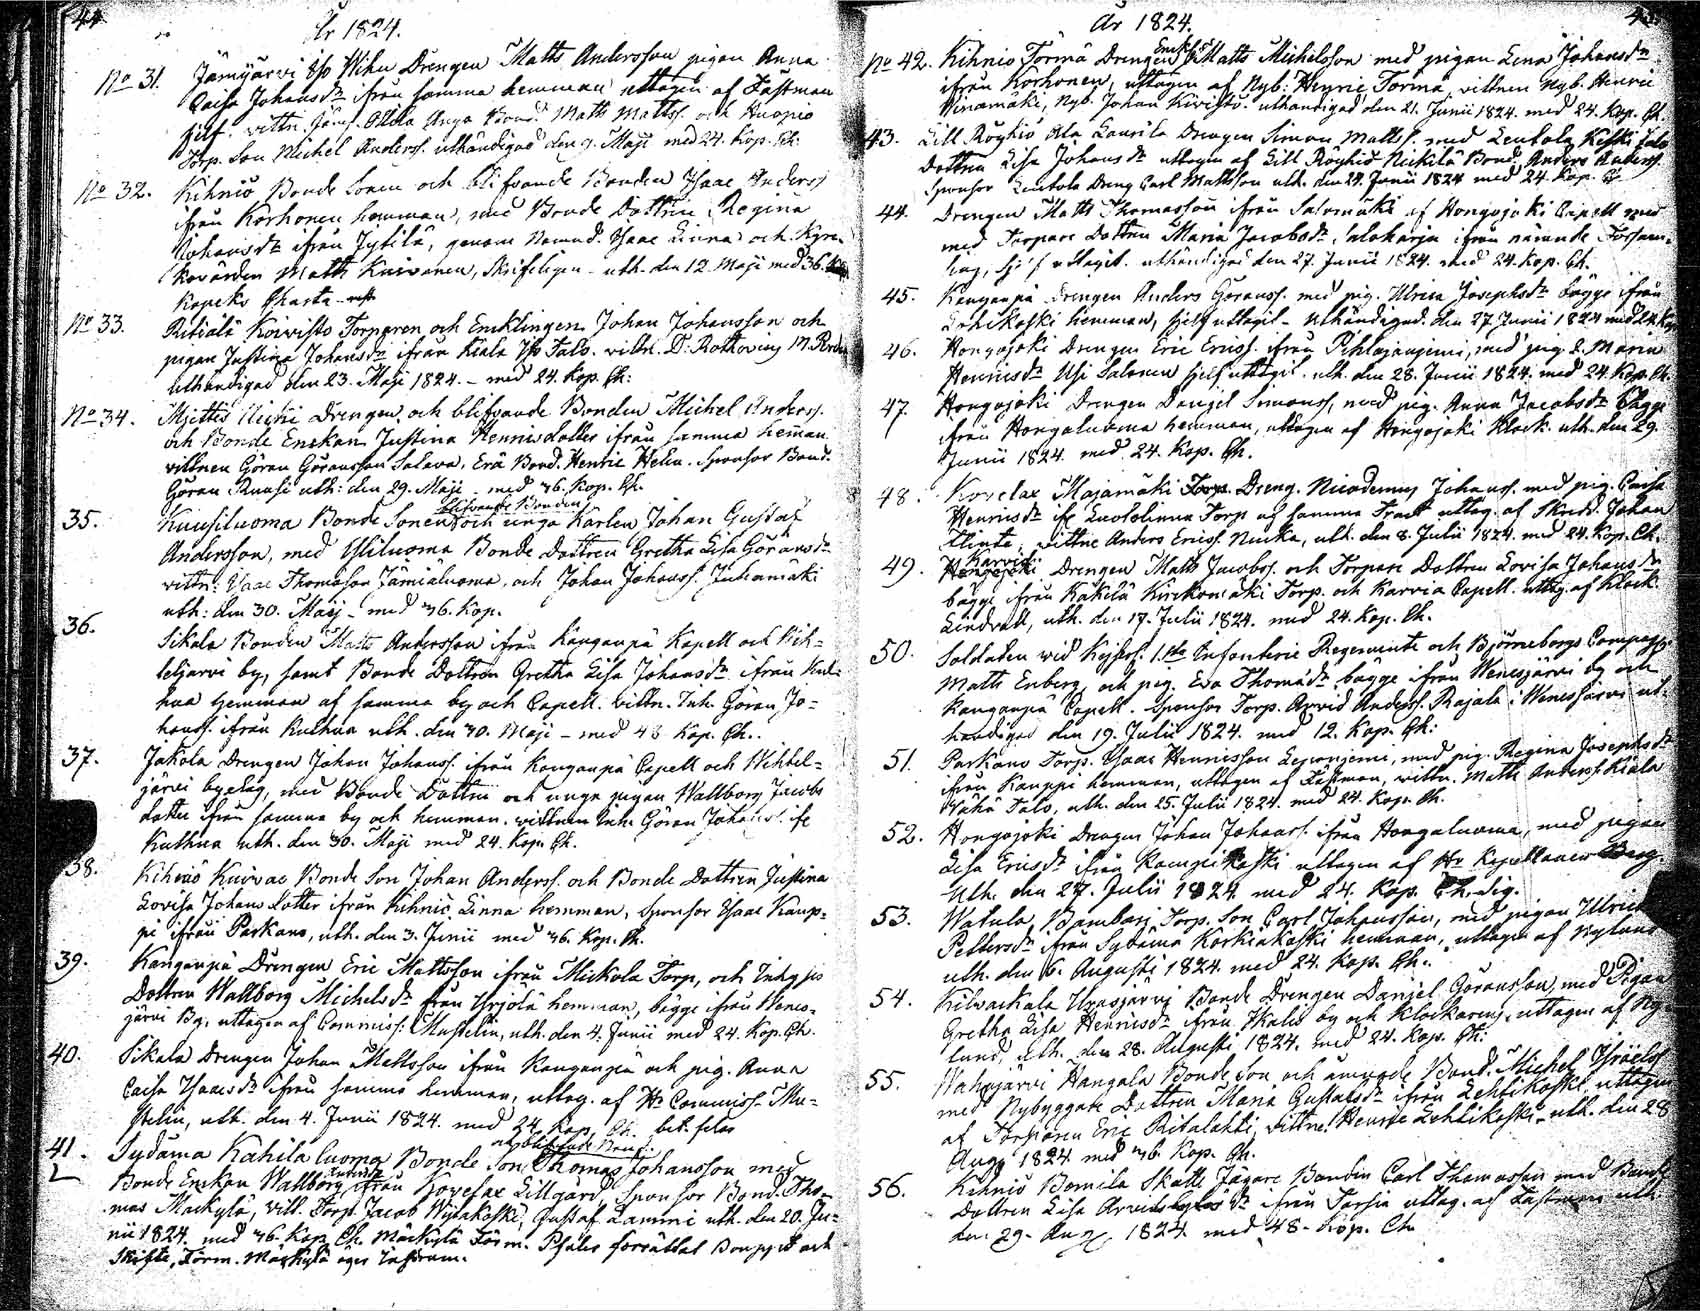 44
År 1824.
No 31. Jämijärvi Ylip Wihu Drengen Matts Andersson pigan Anna
Caisa Johansdr ifrån samma hemman uttagen af Fästman
sjelf. vittn. Jämj. Ollila Anga Bond. Matts Mattss. och Kuopio
Torp. Son Michel Anderss. uthändigad den 9. Maji med 24. Kop. Ch:
No 32. Kihniö Bonde Sonen och blifvande Bonden Isaac Anderss
ifrån Korhonen hemman, med Bonde Dottren Regina
Johansdr ifrån Jytilä, genom Nämnd. Isaac Linna och Kyrko-
värden Matts Kuivanen, Skrifteligen - uth. den 12 Maji med 36.
Kopeks Charta
No 33. Ritiala Koivisto Torparen och Encklingen Johan Johansson och
pigan Justina Johansdr ifrån Kiala Talo. vittn. D: Rothovius M.
uthändigad den 23. Maji 1824. - med 24. Kop. Ch:
No 34. Miettis Drengen och blifvande Bonden Michel Anderss.
och Bonde Enckan Justina Henricsdotter ifrån samma heman
vittnen Göran Göransson Salava, Erä Bond. Henric Helin. Sponsor Bond.
Göran Ruusi uth: den 29. Maji - med 36. Kop. Ch.
35. Kuusiluoma Bonde Sonen blifvande Bonden och unga Karlen Johan Gustaf
Andersson, med Yliluoma Bonde Dottren Gretha Lisa Göransdr
vittn: Isaac Thomason Jämiäluoma, och Johan Johanss. Juhamäki
uth: den 30. Maij - med 36. Kop.
36. Sikala Bonden Matts Andersson ifrån Kangaupä Kapell och Wih-
teljarvi by, samt Bonde Dottren Gretha Lisa Johansdr ifrån Kul-
hua hemman af samma by och Capell. vittn. Inh. Göran Jo-
hanss. ifrån Kulhua uth. den 30. Maji - med 48 Kop. Ch.
37. Jakola Drengen Johan Johanss. ifrån Kangaupä Capell och Wihtel-
järvi byelag, med Bonde Dottren och unga pigan Wallborg Jacobs
dotter ifrån samma by och hemman. vittnen Inh. Göran Johanss. ifr
Kulhua uth. den 30. Maji med 24. Kop. Ch.
38. Kihniö Kuivas Bonde Son Johan Anderss. och Bonde Dottren Justina
Lovisa Johans Dotter ifrån Kihniö Linna hemman, Sponsor Isaac Kaup-
pi ifrån Parkano, uth. den 3. Junii med 36. Kop. Ch.
39. Kangaupä Drengen Eric Mattsson ifrån Mickola Torp, och Inhyses
Dottren Wallborg Michelsdr från Yrjölä hemman, bägge ifrån Wenes-
järvi By, uttagen af Commiss: Mustelin, uth. den 4. Junii med 24. Kop. Ch.
40. Sikala Drengen Johan Mattsson ifrån Kangaupä och pig. Anna
Caisa Isaacsdr ifrån samma hemman, uttag. af Hr Commiss. Mu-
stelin, uth. den 4. Junii 1824. med 24 Kop. Ch. bet. felas
41. Sydäma Kahila luoma Bonde Son och blifvande Thomas Johansson med
Bonde Enckan Wallborg ifrån Kovelax Lillgård, Sponsor Bond. Tho-
mas Mackylä, vitt. Torp. Jacob Wyhäkoski, Gustaf Lammi uth. den 20. Ju-
nii 1824. med 36. Kop. Ch. Mackylä Förm. försättat Bouppt och
Skifte, Förm. Mackylä äger
År 1824.
No 42. Kihniö Törmä Drengen Enckl. Matts Michelsson med pigan Lena Johansdr
ifrån Korhonen, uttagen af Nyb: Henric Törmä, vittnen Nyb. Henric
Niinamäki, Nyb. Johan Kivistö. uthändigad den 21. Junii 1824. med 24. Kop. Ch.
43. Lill Röyhiö Ala Laurila Drengen Simon Mattss. med Lentola Keski Talo
Dottren Lisa Johansdr uttagen af Lill Röyhiö Nickilä Bond. Anders Anderss.
Sponsor Lentola Dreng Carl Mattsson uth. den 24. Junii 1824 med 24. Kop. Ch
44. Drengen Matts Thomasson ifrån Salomäki af Hongojoki Capell med
med Torpare Dottren Maria Jacobsdr Alokarja ifrån närande Försam-
ling, sjelf uttagit. uthändigad den 27. Junii 1824. med 24. Kop. Ch.
45. Kangaupä Drengen Anders Göranss. med pig. Ulrica Josephsdr bägge ifrån
Lehtikoski hemman, sjelf uttagit - uthändigad. den 27 Junii 1824 med 24 Kop
46. Hongojoki Drengen Eric Ericss. ifrån Pihlajaniemi, med pig. Q. Maria
Henricsdr Usi Salonen sjelf uttagit. uth. den 28. Junii 1824. med 24. Kop. Ch.
47. Hongojoki Drengen Danjel Simonss, med pig. Anna Jacobsdr Bägge
ifrån Hongoluoma hemman, uttagen af Hongojoki Klock. uth. den 29.
Junii 1824. med 24. Kop. Ch.
48. Kovelax Majamäki Torp. Dreng. Nicodemus Johanss. med pig. Caisa
Henricsdr ifr Luotolinna Torp af samma Trakt uttag. af Skrädd. Johan
Klinte, vittne Anders Ericss. Nucka, uth. den 8. Julii 1824. med 24. Kop. Ch.
49. Karvia Drengen Matts Jacobss. och Torpare Dottren Lovisa Johansdr
bägge ifrån Käkelä Kirckomäki Torp. och Karvia Capell. uttag. af Klock.
Lindroth, uth. den 17. Julii 1824. med 24. Kop. Ch.
50. Soldaten vid Kejserl. 1sta Infanterie Regemente och Björneborgs Compagni
Matts Enberg och pig. Eva Thomasdr bägge ifrån Wenesjärvi by och
Kangaupä Capell. Sponsor Torp. Arvid Anderss. Rajala i Wenesjärvi ut-
händigad den 19. Julii 1824. med 12. Kop. Ch:
51. Parkano Torp. Isaac Henricsson Leponjemi, med pig. Regina Josephsdr
ifrån Kauppi hemman, uttagen af Fästman, vittn. Matts Anderss. Kiala
Wähä Talo, uth. den 25. Julii 1824. med 24. Kop. Ch.
52. Hongojoki Drengen Johan Johanss. ifrån Hongoluoma, med pigan
Lisa Ericsdr ifrån uttagen af Hr Kapellanen Berg.
Uth. den 27. Julii 1824. med 24. Kop. Ch. Sig.
53. Watula, Torp. Son Carl Johansson, med pigan Ulrica
Pettersdr ifrån Sydäma Korkiakoski hemman, uttagen af Nylund
uth. den 6. Augusti 1824. med 24. Kop. Ch.
54. Kilvackala Upasjärvi Bonde Drengen Danjel Göransson, med Pigan
Gretha Lisa Henricsdr ifrån Ikalis by och Klockarens, uttagen af Ny-
lund, uth. den 28. Augusti 1824. med 24. Kop. Ch:
55. Wahojärvi Hangala Bonde Son och Bond. Michel Israelss.
med Nybyggare Dottren Maria Gustafsdr ifrån Lehtikoski uttagen
af Torparen Eric Ritalahti, vittne Henric Lehtikoski, uth. den 28
Aug. 1824 med 36. Kop. Ch.
56. Kihniö Bomila Skatte Jägare Bonden Carl Thomasson med Bonde
Dottren Lisa Arvidsdr ifrån uttag. af Fästman uth.
den 29. Aug. 1824. med 48. Kop. Ch.